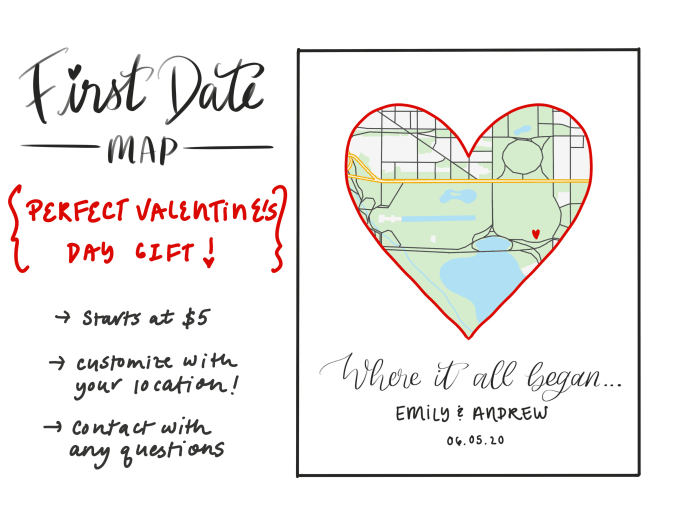 First Date
MAP
PERFECT VALENTINE'S
DAY GIFT!
→ Starts at $5
→ customize with
your location!
→ Contact with
any questions
Where it all began...
EMILY & ANDREW
06.05.20